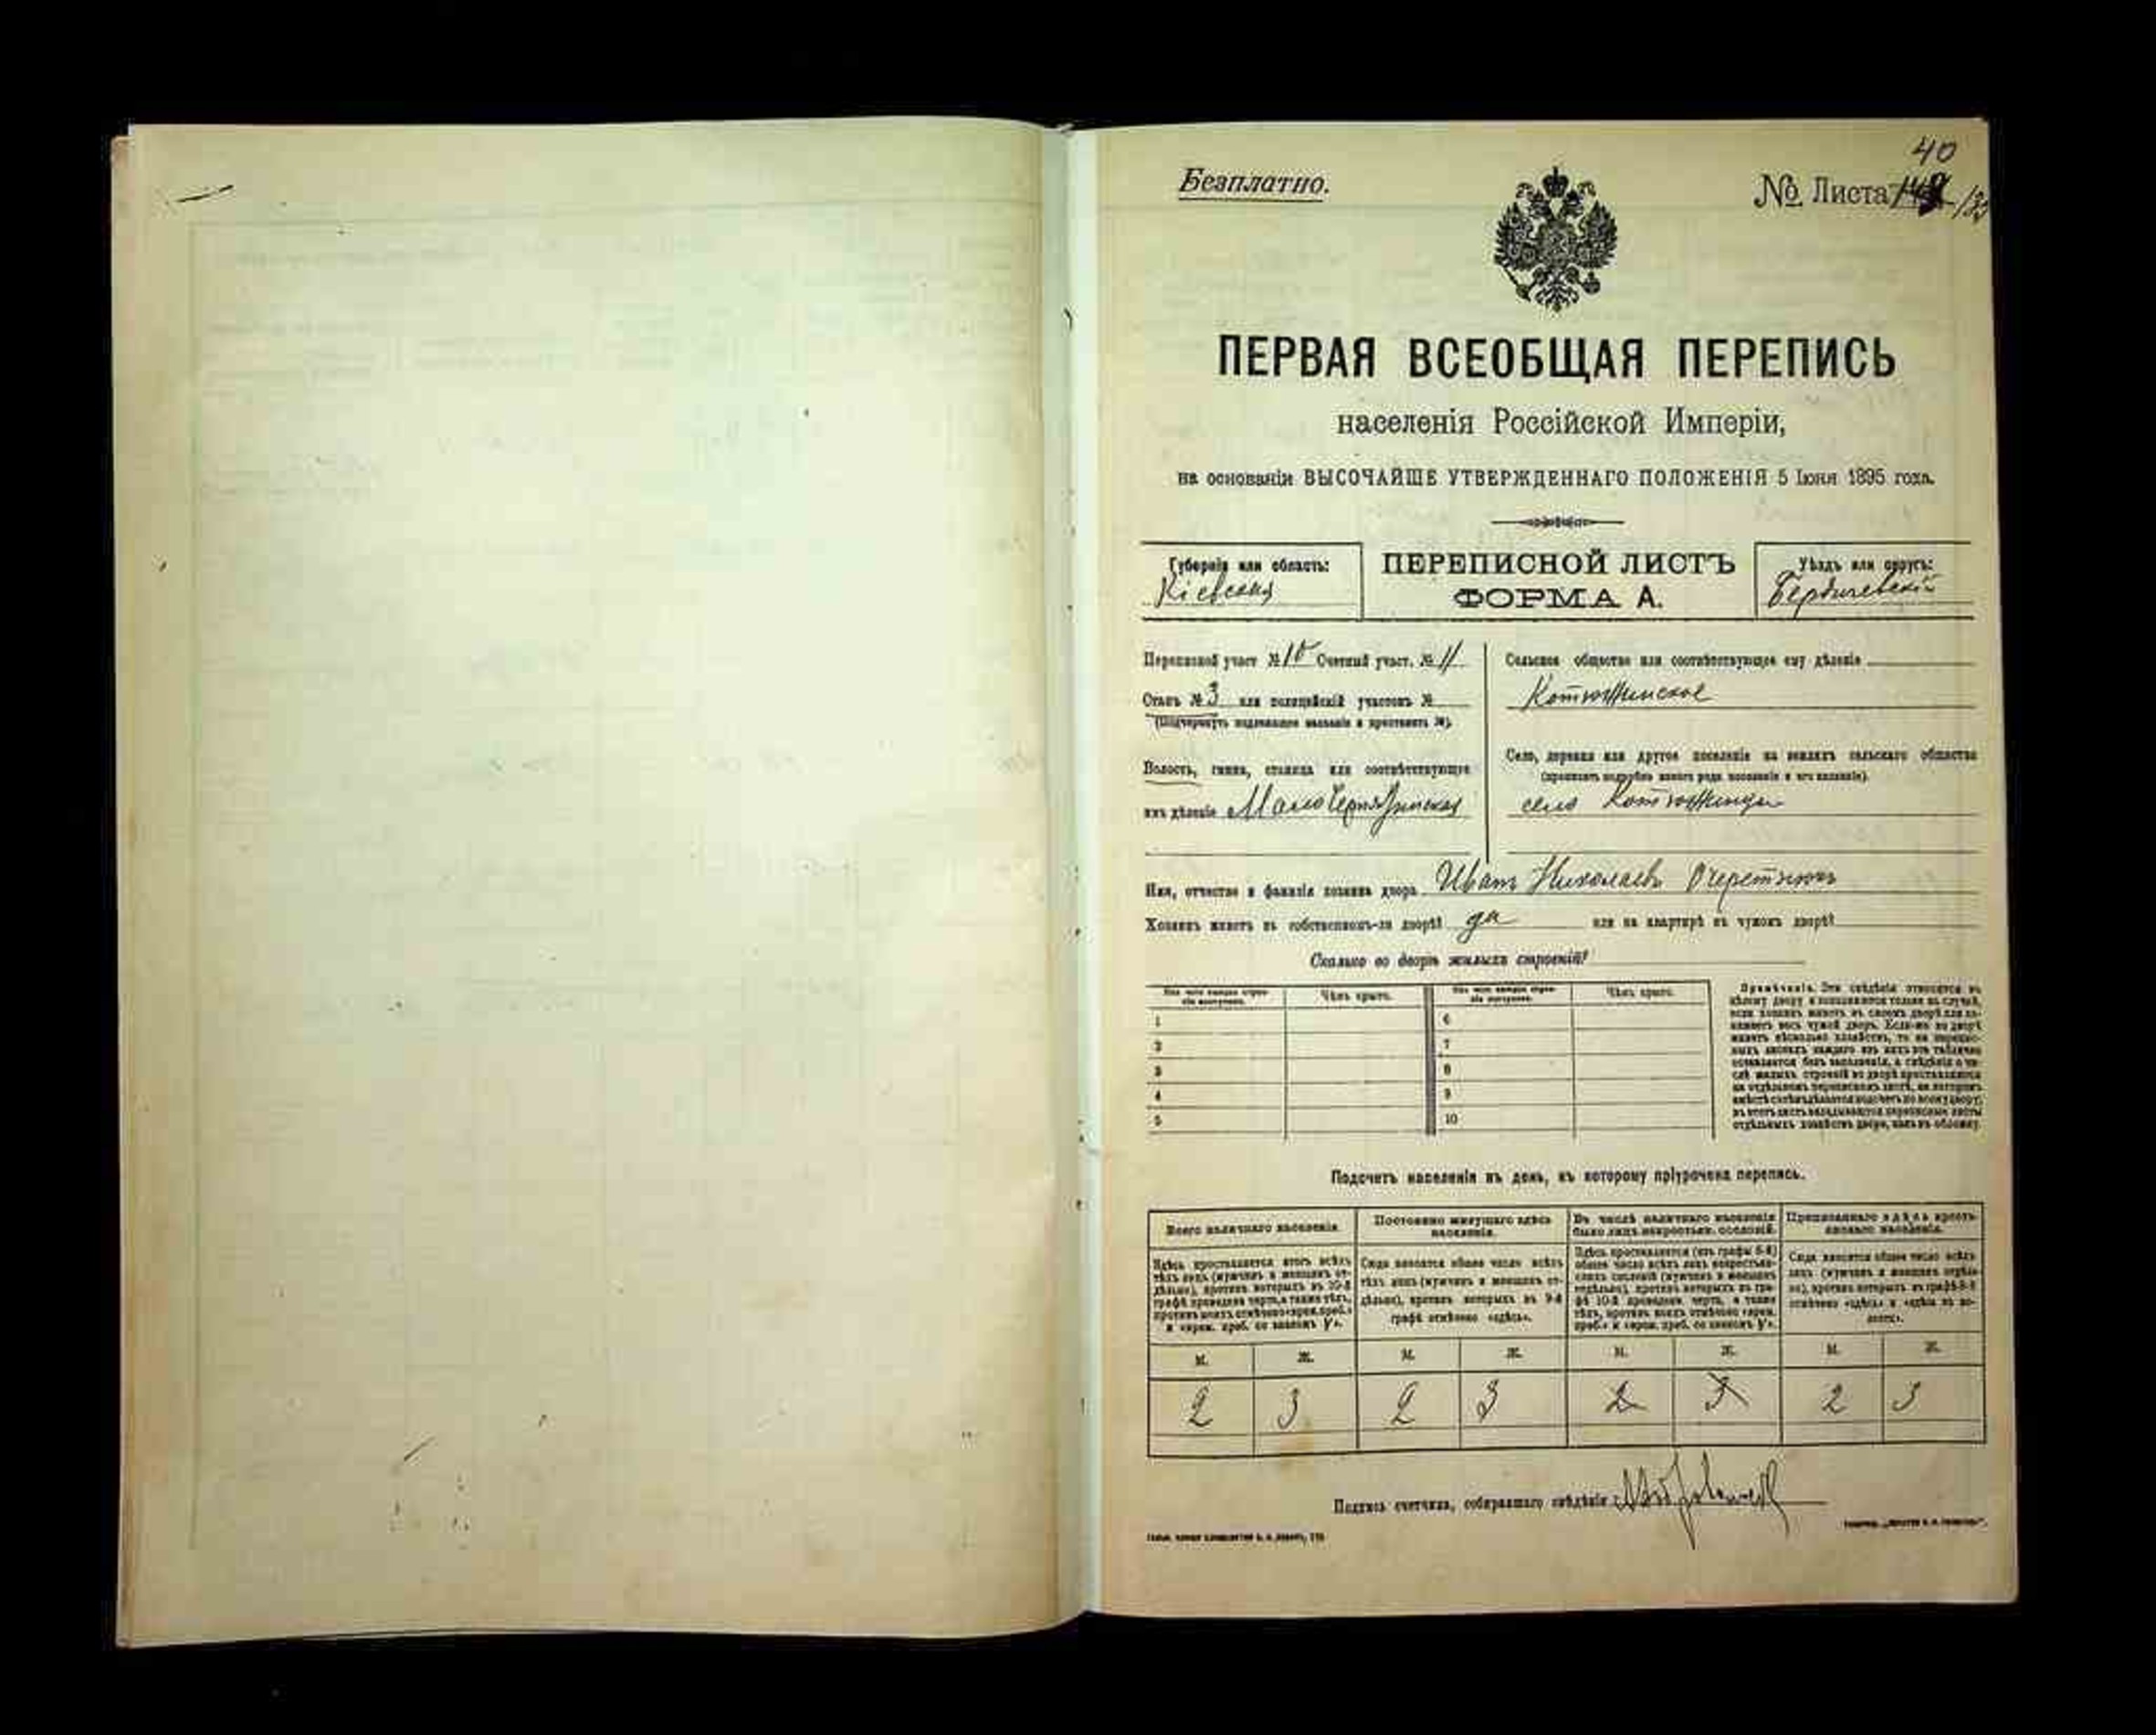 40
Безплатно.
№ Листа
ПЕРВАЯ ВСЕОБЩАЯ ПЕРЕПИСЬ
населенія Россійской Имперіи,
на основаніи ВЫСОЧАЙШЕ УТВЕРЖДЕННАГО ПОЛОЖЕНІЯ 5 Іюня 1895 года.
Губернія или область:
Кіевская
ПЕРЕПИСНОЙ ЛИСТЪ
ФОРМА А.
Уѣздъ или округъ:
Бердичевскій
Переписной участ. № 10 Счетный участ. № 11
Станъ № 3 или полицейскій участокъ №
(Подчеркнуть подлежащее названіе и проставить №).
Волость, гмина, станица или соотвѣтствующее
имъ дѣленіе
Сельское общество или соотвѣтствующее ему дѣленіе
Котюжинское
Село, деревня или другое поселеніе на земляхъ сельскаго общества
(прописать подробно какого рода поселеніе и его названіе).
село Котюжинцы
Имя, отчество и фамилія хозяина двора Иванъ Николаевъ Очеретнюкъ
Хозяинъ живетъ въ собственномъ-ли дворѣ? да или на квартирѣ въ чужомъ дворѣ?
Сколько во дворѣ жилыхъ строеній?
Изъ чего каждое строеніе построено. Чѣмъ крыто. Изъ чего каждое строеніе построено. Чѣмъ крыто.
1 6
2 7
3 8
4 9
5 10
Примѣчаніе. Эти свѣдѣнія относятся къ
цѣлому двору и заполняются только въ случаѣ,
если хозяинъ живетъ въ своемъ дворѣ или за-
нимаетъ весь чужой дворъ. Если-же во дворѣ
живетъ нѣсколько хозяйствъ, то на перепис-
ныхъ листахъ каждаго изъ нихъ эта табличка
оставляется безъ заполненія, а свѣдѣнія о чи-
слѣ жилыхъ строеній во дворѣ проставляются
на отдѣльномъ переписномъ листѣ, на которомъ
Подсчетъ населенія въ день, къ которому пріурочена перепись.
Всего наличнаго населенія.
Здѣсь проставляется итогъ всѣхъ
тѣхъ лицъ (мужчинъ и женщинъ от-
дѣльно), противъ которыхъ въ 10-й
графѣ проведена черта, а также тѣхъ,
противъ коихъ отмѣчено «врем. преб.»
Постоянно живущаго здѣсь
населенія.
Сюда вносится общее число всѣхъ
тѣхъ лицъ (мужчинъ и женщинъ от-
дѣльно), противъ которыхъ въ 9-й
графѣ отмѣчено «здѣсь».
Въ числѣ наличнаго населенія
было лицъ некрестьян. сословій.
Здѣсь проставляется (изъ графы 5-й)
общее число всѣхъ лицъ некрестьян-
скихъ сословій (мужчинъ и женщинъ
отдѣльно), противъ которыхъ въ гра-
фѣ 10-й проведена черта, а также
тѣхъ, противъ коихъ отмѣчено «врем.
Приписаннаго здѣсь кресть-
янскаго населенія.
Сюда вносится общее число всѣхъ
лицъ (мужчинъ и женщинъ отдѣль-
но), противъ которыхъ въ графѣ 8-й
отмѣчено «здѣсь» и «здѣсь въ во-
лости».
М. Ж. М. Ж. М. Ж. М. Ж.
2 3 2 3 2 3 2 3
Подпись счетчика, собиравшаго свѣдѣнія